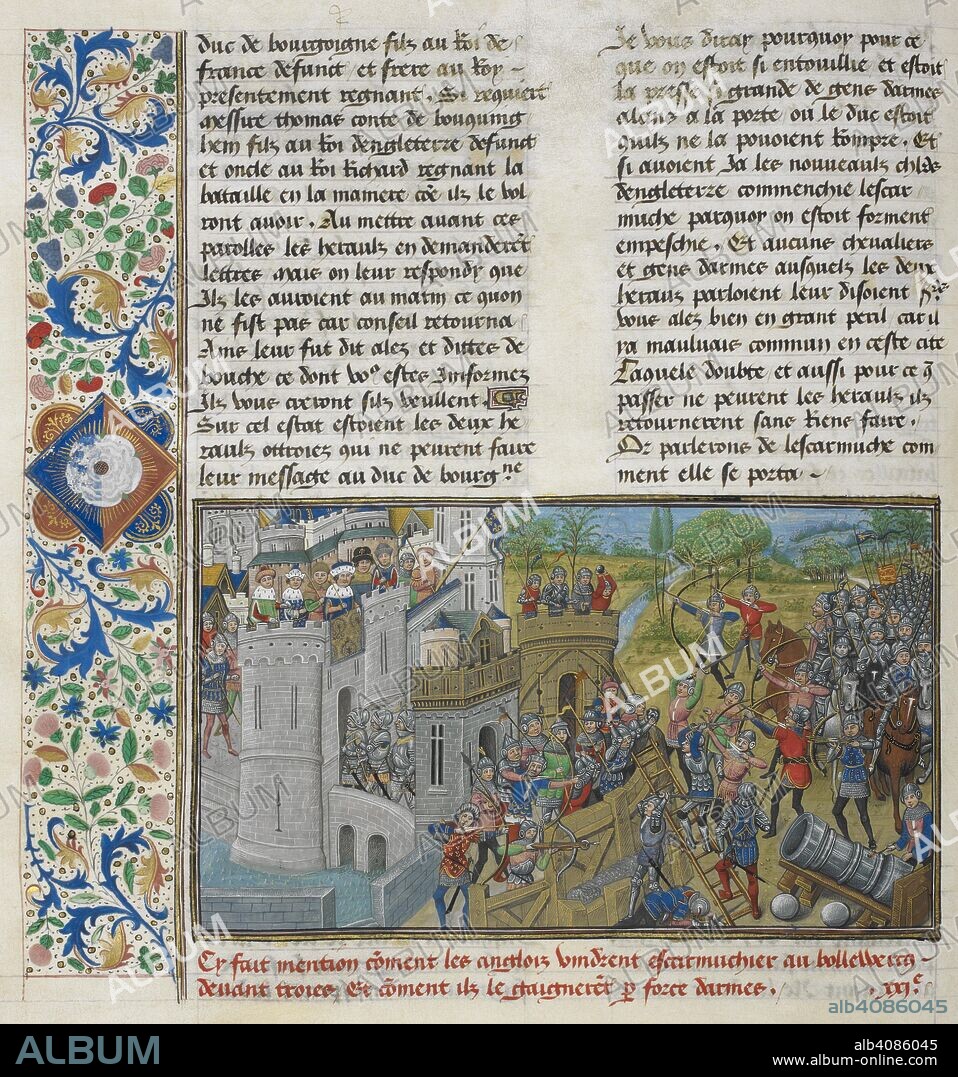 duc de bourgoigne filz au Roi de
france defunct et frere au Roy
presentement regnant. Si requiert
messire thomas conte de bouquing
hem filz au Roi dengleterre defunct
et oncle au Roi Richard regnant la
bataille en la maniere cõe ilz le vol
ront avoir. Au mettre avant ces
parolles les heraulz en demanderẽt
lettres mais on leur respondy que
Ilz les auroient au matin ce quon
ne fist pas car conseil retourna
Ains leur fut dit alez et dittes de
bouche ce dont voꝰ estes Informez
Ilz vous creront silz veullent.
Sur cel estat estoient les deux he
raulz ottroiez qui ne peurent faire
leur message au duc de bourgne
Je vous diray pourquoy pour ce
que on estoit si entouillie et estoit
la presse si grande de gens darmes
alans a la porte ou le duc estoit
quilz ne la povoient Rompre. Et
si avoient Ja les nouveaulx chlrs
dengleterre commenchie lescar
muche parquoy on estoit forment
empeschie. Et aucuns chevaliers
et gens darmes ausquelz les deux
heraux parloient leur disoient
vous alez bien en grant peril car il
ya mauluais commun en ceste cite
Laquele doubte et aussi pour ce q̃
passer ne peurent les heraulz ilz
retournerent sans Riens faire.
Or parlerons de lescarmuche com
ment elle se porta
Cy fait mention cõment les anglois vindrent escarmuchier au bollewercq
devant troies. Et cõment ilz le gaignerẽt p̱ force darmes. .xxjᵉ.
alb4086045
ALBUM
alb4086045
www.album-online.com